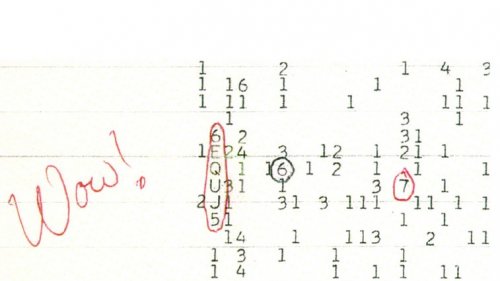 1 2 1 4 3
1 1 16 1 1 1
1 11 1 1 11 1
1 3 1
6 2 31
1 E24 3 12 1 21 1 1
Q 1 16 1 2 1 1 1
U31 1 3 7 1
2 J1 31 3 111 11 1 1
51 1 1
14 1 113 2 11
1 3 1 1 1
1 4 1 1 1 11
Wow!